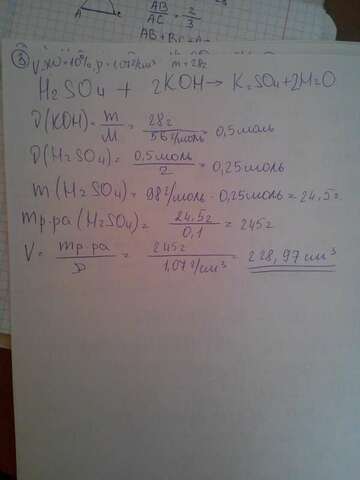 A
c
AB/AC = 2/3
AB + BC = A
③ V, X0 = 10%, ρ = 1,07г/см³ m = 28г
H₂SO₄ + 2KOH → K₂SO₄ + 2H₂O
ν(KOH) = m/M = 28г/56г/моль = 0,5моль
ν(H₂SO₄) = 0,5моль/2 = 0,25моль
m(H₂SO₄) = 98г/моль · 0,25моль = 24,5г
mр-ра(H₂SO₄) = 24,5г/0,1 = 245г
V = mр-ра/ρ = 245г/1,07г/см³ = 228,97см³